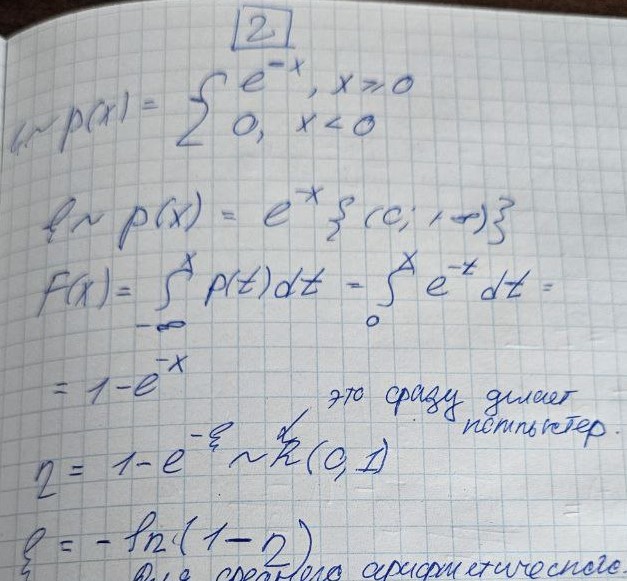 2
ξ ~ p(x) = { e^{-x}, x ≥ 0
0, x < 0
ξ ~ p(x) = e^{-x} {(0; +∞)}
F(x) = ∫_{-∞}^{x} p(t)dt = ∫_{0}^{x} e^{-t} dt =
= 1 - e^{-x}
это сразу делает
компьютер.
η = 1 - e^{-ξ} ~ R(0,1)
ξ = -ln(1-η)
Для среднего арифметического